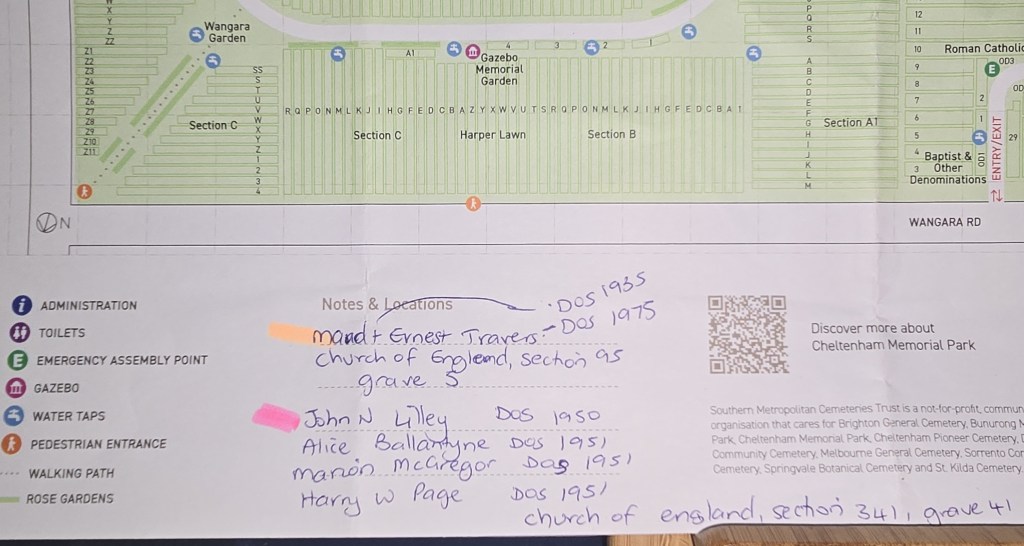 X
Y
Z
ZZ
Wangara
Garden
Z1
Z2
Z3
Z4
Z5
Z6
Z7
Z8
Z9
Z10
Z11
Section C
SS
S
T
U
V
W
X
Y
Z
1
2
3
4
A1
4
3
2
1
Gazebo
Memorial
Garden
R Q P O N M L K J I H G F E D C B A Z Y X W V U T S R Q P O N M L K J I H G F E D C B A 1
Section C
Harper Lawn
Section B
P
Q
R
S
A
B
C
D
E
F
G
H
I
J
K
L
M
Section A1
12
11
10
9
8
7
6
5
4
3
Roman Catholic
E
OD3
2
1
OD1
29
ENTRY/EXIT
Baptist &
Other
Denominations
N
WANGARA RD
i ADMINISTRATION
TOILETS
E EMERGENCY ASSEMBLY POINT
GAZEBO
WATER TAPS
PEDESTRIAN ENTRANCE
WALKING PATH
ROSE GARDENS
Notes & Locations
· DOS 1935
Maud + Ernest Travers - DOS 1975
church of England, section 95
grave 5
John N Lilley DOS 1950
Alice Ballantyne DOS 1951
Marion McGregor DOS 1951
Harry W Page DOS 1951
church of england, section 341, grave 41
Discover more about
Cheltenham Memorial Park
Southern Metropolitan Cemeteries Trust is a not-for-profit, commun
organisation that cares for Brighton General Cemetery, Bunurong M
Park, Cheltenham Memorial Park, Cheltenham Pioneer Cemetery,
Community Cemetery, Melbourne General Cemetery, Sorrento Cem
Cemetery, Springvale Botanical Cemetery and St. Kilda Cemetery.